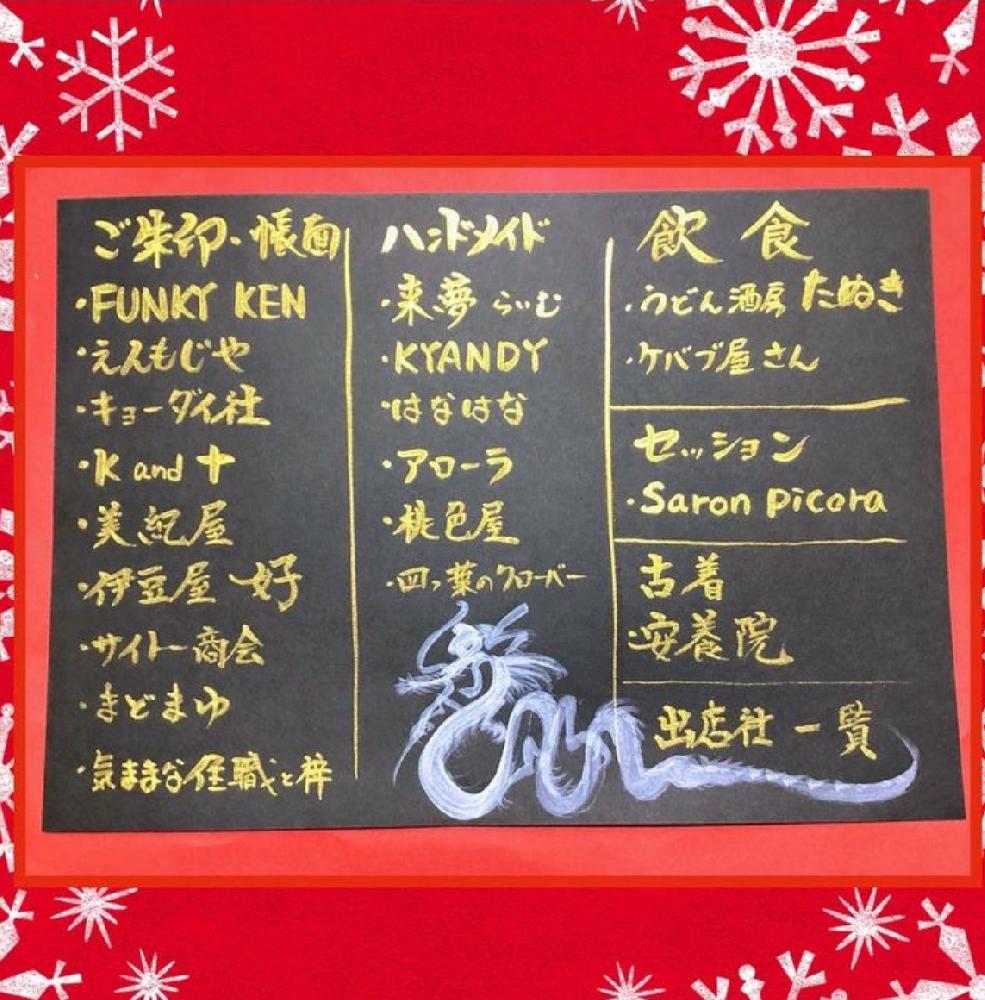 ご朱印・帳面
・FUNKY KEN
・えんもじや
・キョーダイ社
・K and 十
・美紀屋
・伊豆屋 好
・サイトー商会
・まどまゆ
・気ままな住職と梓
ハンドメイド
・来夢 らいむ
・KYANDY
・はなはな
・アローラ
・桃色屋
・四つ葉のクローバー
飲食
・うどん酒房 たぬき
・ケバブ屋さん
セッション
・Saron picora
古着
・安養院
出店社一覧